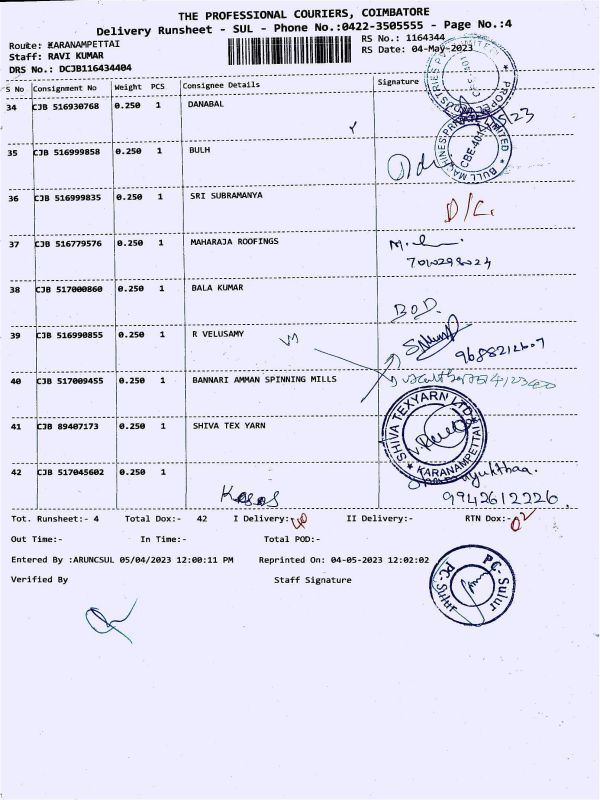 THE PROFESSIONAL COURIERS, COIMBATORE
Delivery Runsheet - SUL - Phone No.:0422-3505555 - Page No.:4
Route: KARANAMPETTAI
RS No.: 1164344
Staff: RAVI KUMAR
RS Date: 04-May-2023
DRS No.: DCJB116434404
S No Consignment No Weight PCS Consignee Details Signature
34 CJB 516930768 0.250 1 DANABAL
35 CJB 516999858 0.250 1 BULH
BULL MACHINES PRIVATE LIMITED
36 CJB 516999835 0.250 1 SRI SUBRAMANYA D/C.
37 CJB 516779576 0.250 1 MAHARAJA ROOFINGS
38 CJB 517000860 0.250 1 BALA KUMAR
BOD.
39 CJB 516990855 0.250 1 R VELUSAMY
9688212607
40 CJB 517009455 0.250 1 BANNARI AMMAN SPINNING MILLS
41 CJB 89407173 0.250 1 SHIVA TEX YARN
SHIVA TEXYARN LTD
KARANAMPETTAI
42 CJB 517045602 0.250 1
9942612226.
Tot. Runsheet:- 4 Total Dox:- 42 I Delivery:- 40 II Delivery:- RTN Dox:- 02
Out Time:- In Time:- Total POD:-
Entered By :ARUNCSUL 05/04/2023 12:00:11 PM Reprinted On: 04-05-2023 12:02:02
Verified By Staff Signature
PC-Sulur
PC-Sulur